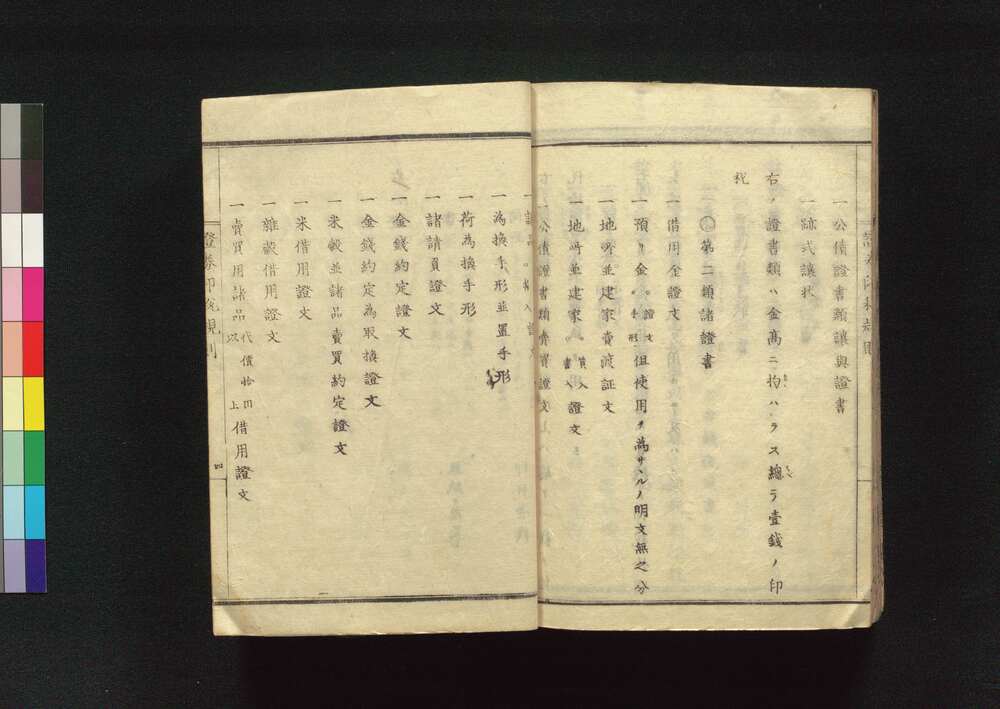 一公債證書類讓與證書
一跡式讓狀
右ノ證書類ハ金高ニ拘ハラス總テ壹錢ノ印
税
第二類諸證書
一借用金證文
一預リ金證文手形但使用ヲ為サヽルノ明文無之分
一地所並建家賣渡証文
一地所並建家質入書入證文
一公債證書類賣買證文
一為換手形並置手形
一荷為換手形
一諸請負證文
一金錢約定證文
一金錢約定為取換證文
一米穀並諸品賣買約定證文
一米借用證文
一雜穀借用證文
一賣買用諸品代價拾円以上借用證文
證券印税規則
四